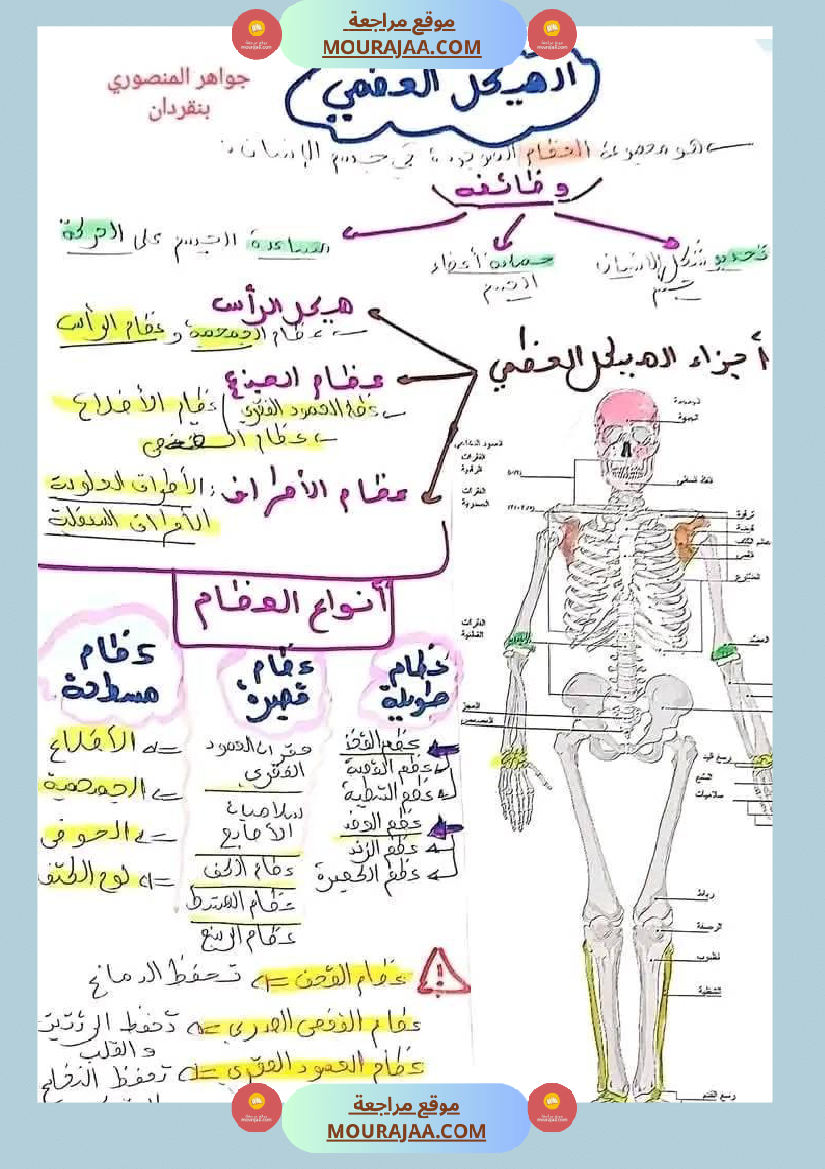 موقع مراجعة
MOURAJAA.COM
جواهر المنصوري
بنقردان
الهيكل العظمي
هو مجموعة العظام الموجودة في جسم الإنسان
وظائفه
تحديد شكل الإنسان
جسم
حماية أعضاء
الجسم
مساعدة الجسم على الحركة
أجزاء الهيكل العظمي
هيكل الرأس
عظام الجمجمة و عظام الرأس
عظام الجذع
عظام العمود الفقري / عظام الأضلاع
عظام
عظام الأطراف: الأطراف العلوية
الأطراف السفلية
أنواع العظام
عظام
طويلة
عظم الفخذ
عظم القصبة
عظم الشظية
عظم العضد
عظم الزند
عظم الكعبرة
عظام
قصيرة
فقرات العمود
الفقري
سلاميات
الأصابع
عظام الكف
عظام المشط
عظام الرسغ
عظام
مسطحة
الأضلاع
الجمجمة
الحوض
لوح الكتف
عظام القحف => تحفظ الدماغ
عظام القفص الصدري => تحفظ الرئتين
والقلب
عظام العمود الفقري => تحفظ النخاع
الجمجمة
الجبهة
الفقرات
الفقرات
الصدرية
ترقوة
الضلوع
الفقرات
القطنية
العضد
العجز
رسغ اليد
المشط
سلاميات
الرضفة
الشظية
رسغ القدم
موقع مراجعة
MOURAJAA.COM